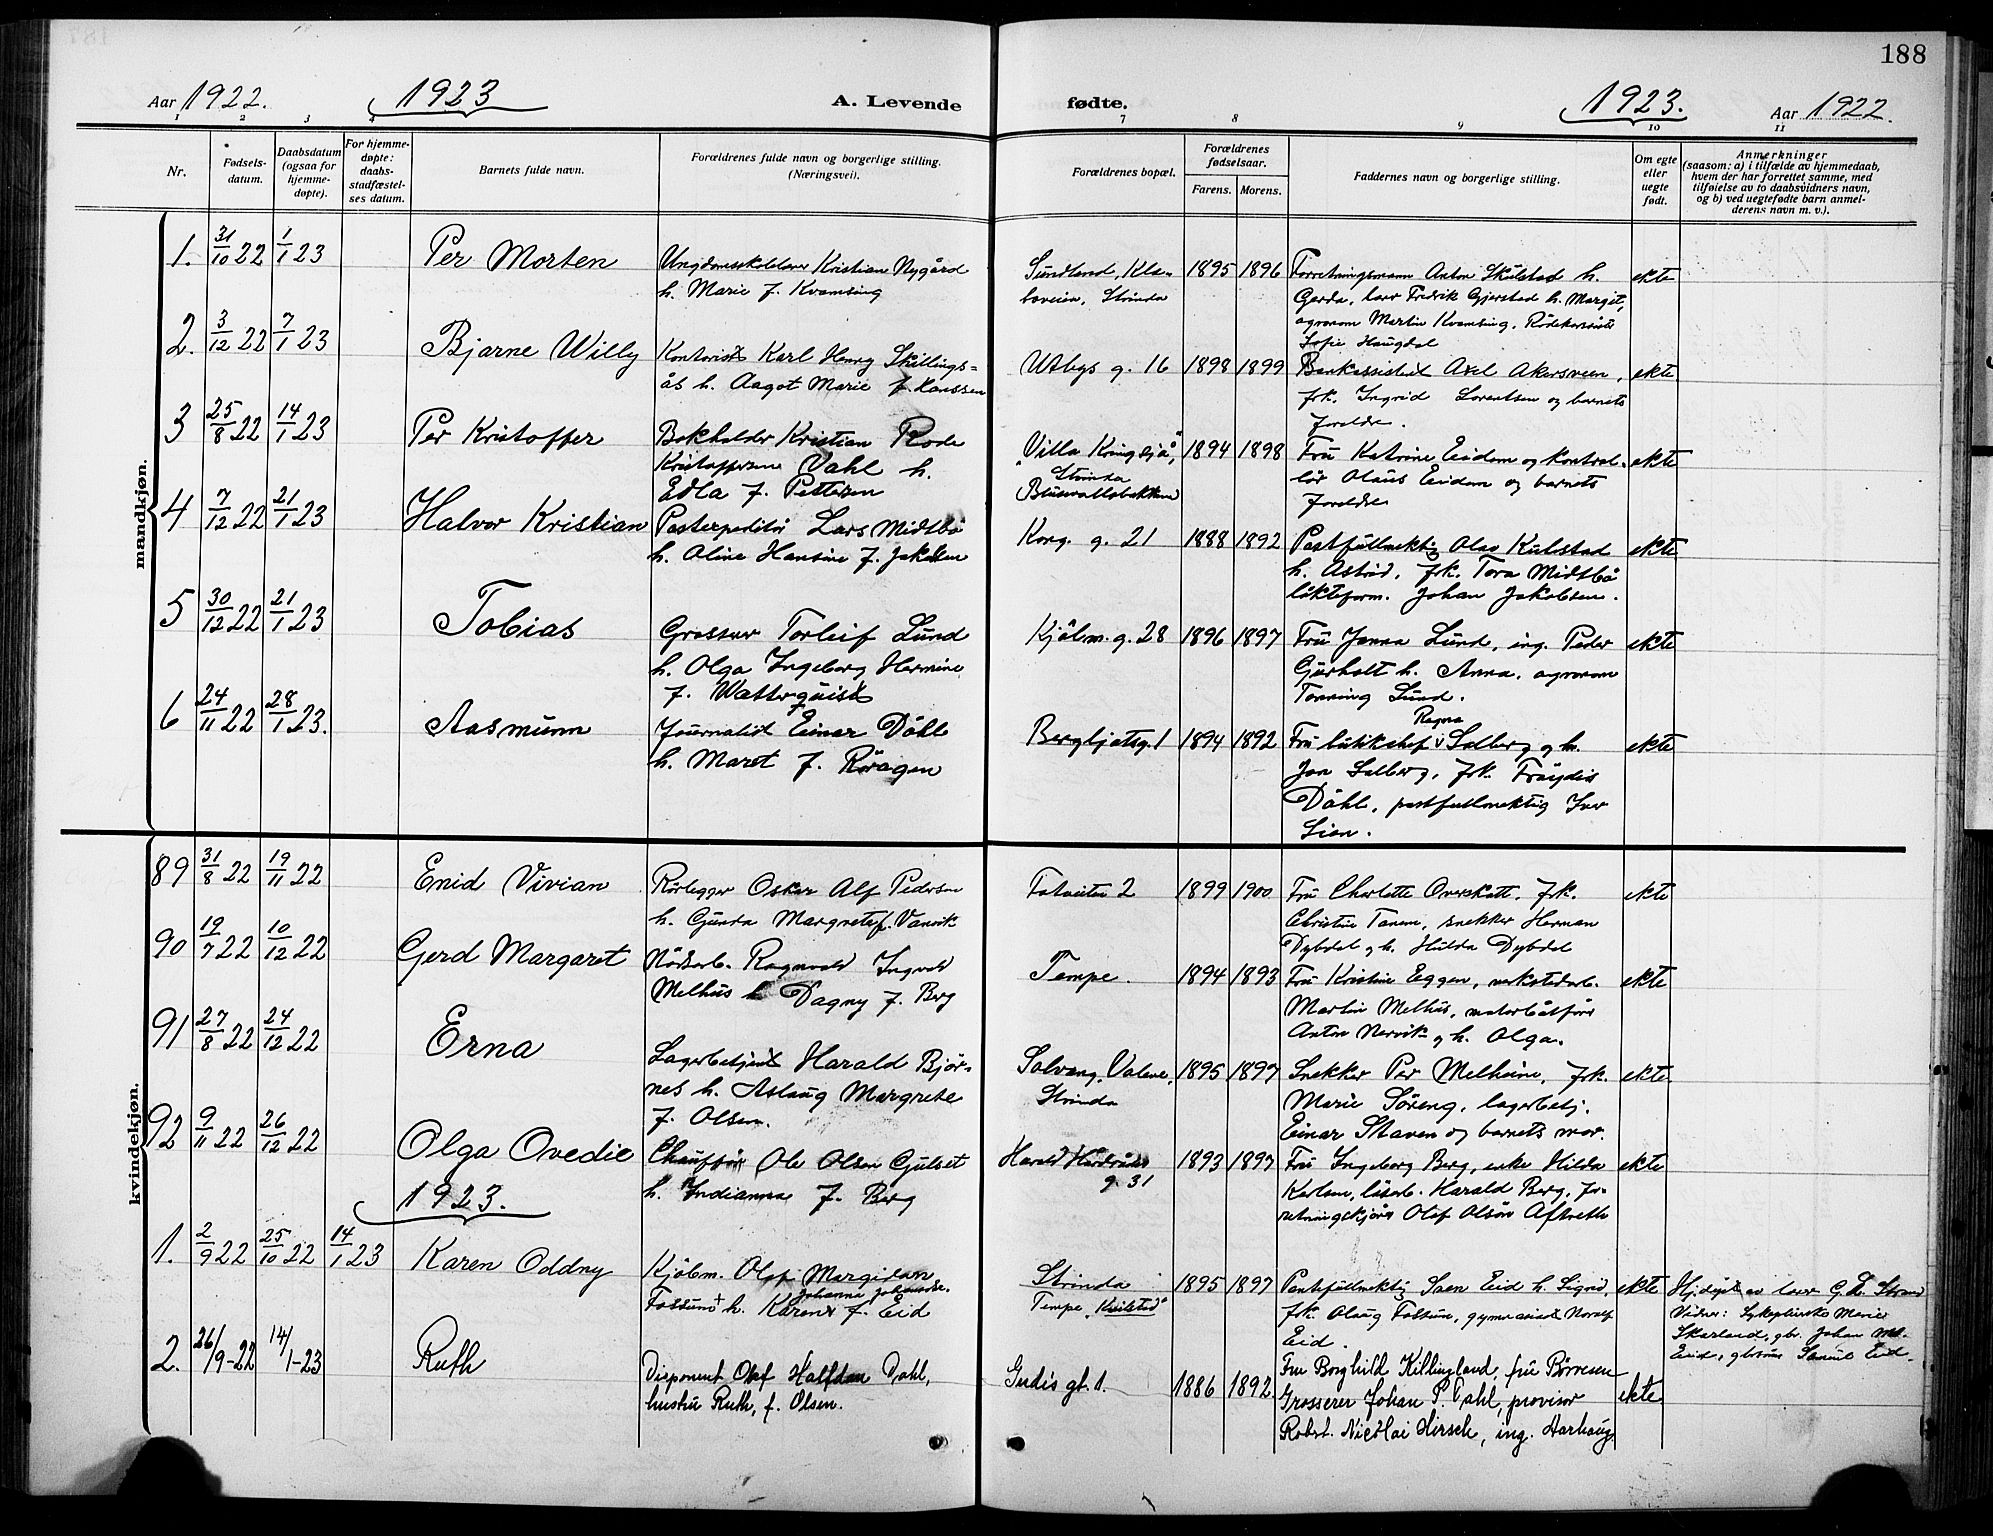 188
Aar 1922. 1923 A. Levende fødte. 1923. Aar 1922.
1 2 3 4 7 8 9 10 11
Nr.
Fødsels-
datum.
Daabsdatum
(ogsaa for
hjemme-
døpte).
For hjemme-
døpte:
daabs-
stadfæstel-
ses datum.
Barnets fulde navn.
Forældrenes fulde navn og borgerlige stilling.
(Næringsvei).
Forældrenes bopæl.
Forældrenes
fødselsaar.
Farens. Morens.
Faddernes navn og borgerlige stilling.
Om egte
eller
uegte
født.
Anmerkninger
(saasom: a) i tilfælde av hjemmedaab,
hvem der har forrettet samme, med
tilføielse av to daabsvidners navn,
og b) ved uegtefødte barn anmel-
derens navn m. v.).
mandkjøn.
1. 31/10 22 1/1 23 Per Morten
Ungdomsskolelærer Kristian Nygård
h. Marie f. Kvamsing
Sundland, Klæ-
boveien, Strinda
1895 1896
Forretningsmann Anton Skulstad h.
Gerda, lærer Fredrik Gjerstad h. Margit,
agronom Martin Kvamsing, Rødekorssøster
Sofie Haugdal
ekte
2. 3/12 22 7/1 23 Bjarne Willy
Kontorist Karl Henry Skillings=
ås h. Aagot Marie f. Hanssen
Utbygs g. 16 1898 1899
Bankassistent Axel Akersveen,
frk. Ingrid Lorentsen og barnets
foreldre.
ekte
3 25/8 22 14/1 23 Per Kristoffer
Bokholder Kristian Rode
Kristoffersen Dahl h.
Edla f. Pettersen
"Villa Kringsjå",
Strinda
1894 1898
Fru Katrine Eidem og kontrol-
lør Olaus Eidem og barnets
foreldre
ekte
4 7/12 22 21/1 23 Halvor Kristian
Postexpeditør Lars Midtbø
h. Oline Hansine f. Jakobsen
Korg. g. 21 1888 1892
Postfullmektig Olav Kulstad
h. Astrid, frk. Tora Midtbø
lökteform. Johan Jakobsen.
ekte
5 30/12 22 21/1 23 Tobias
Grosserer Torleif Lund
h. Olga Ingeborg Hermine
f. Watterquist
Kjölm. g. 28 1896 1897
Fru Janna Lund, ing. Peder
Gjerholt h. Anna, agronom
Tønning Lund.
ekte
6 24/11 22 28/1 23. Aasmunn
Journalist Einar Döhl
h. Maret f. Röragen
Bergljotsg. 1 1894 1892
Ragna
Fru butikshef Solberg og h.
Jon Solberg, frk. Fröydis
Döhl, postfullmektig Iver
Lien.
ekte
kvindekjøn.
89 31/8 22 19/11 22 Enid Vivian
Rörlegger Oskar Alf Pedersen
h. Gunda Margrete f. Vanvik
2 1899 1900
Fru Charlotte Overskott, frk.
Christine Tanem, snekker Herman
Dybdal og h. Hilda Dybdal
ekte
90 19/7 22 10/12 22 Gerd Margaret
Ragnvald Ingvald
Melhus h Dagny f. Berg
Tempe. 1894 1893
Fru Kristine Eggen, verkstedarb.
Martin Melhus, motorbåtförer
Anton Nervik og h. Olga.
ekte
91 27/8 22 24/12 22 Erna
Lagerbetjent Harald Björ-
nes h. Aslaug Margrete
f. Olsen.
Solvang, Valene,
Strinda
1895 1897
Snekker Per Melheim, frk.
Marie Söreng, lagerbetj.
Einar Staven og barnets mor.
ekte
92 9/11 22 26/12 22 Olga Ovedie
Chauffør Ole Olsen Gjulset
h. Indianna f. Berg
Harald Hårdrådes
g. 31
1893 1897
Fru Ingeborg Berg, enke Hilda
Karlsen, lösarb. Harald Berg, for-
retningskjörer Olaf Olsön Aftreth
ekte
1923.
1. 2/9 22 25/10 22 14/1 23 Karen Oddny
Kjölm. Olaf Margidan
Johanna Johansdr.
Fossum h. Karen f. Eid
Strinda
Tempe, "Kvilstad"
1895 1897
Postfullmektig Eid h. Sigrid,
frk. Olaug Fossum, gymnasiast Norolf
Eid.
ekte
Hjdöpt av lærer G. L. Strand
Vidner: Sykepleierske Marie
Skarland, gbr. Johan M.
Eid, gbrsönn Samuel Eid.
2. 26/9-22 14/1-23 Ruth
Disponent Olaf Halfdan Dahl,
hustru Ruth, f. Olsen.
Gudes gt. 1. 1886 1892
Fru Borghild Killingland, fru Börresen
Grosserer Johan P. Dahl, provisor
Robert Nicolai Hirsch, ing. Harhaug
ekte